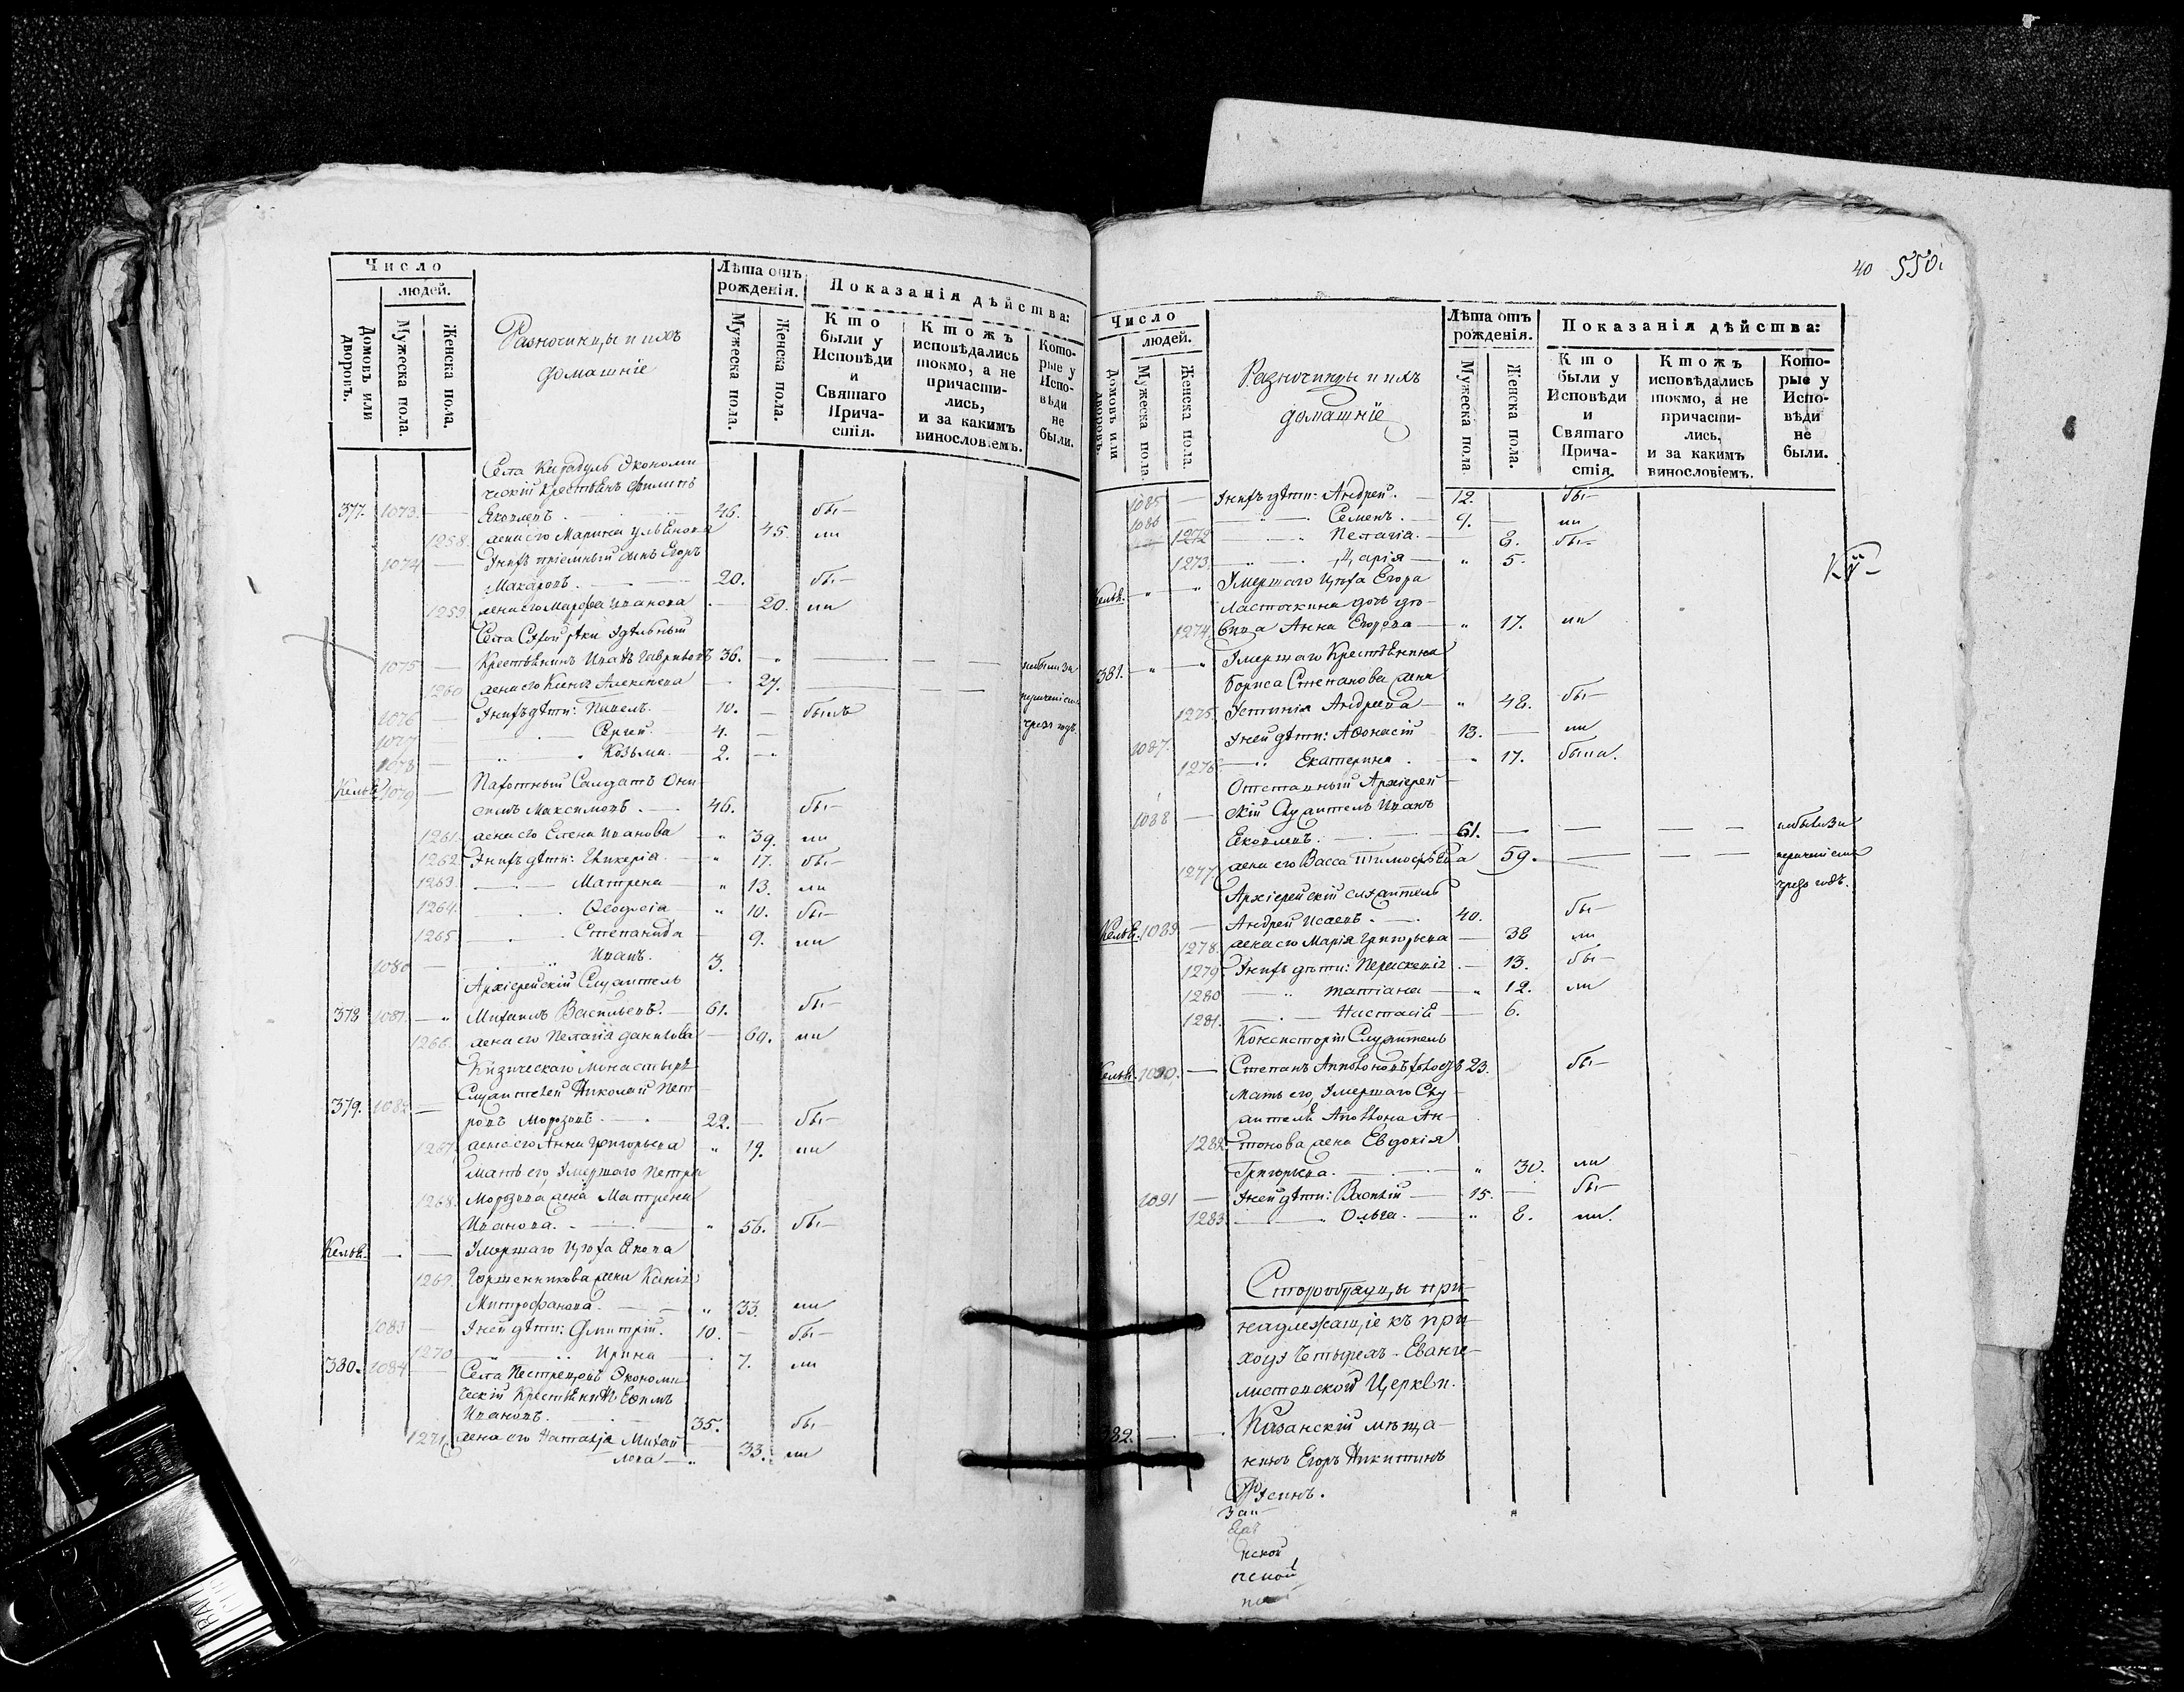 Число
людей.
Домовъ или дворовъ.
Мужеска пола.
Женска пола.
Разночинцы и ихъ
домашніе
Лѣта отъ
рожденія.
Мужеска пола.
Женска пола.
Показанія дѣйства:
Кто были у Исповѣди и Святаго Прича-стія.
Ктожъ исповѣдались токмо, а не причасти-лись, и за какимъ винословіемъ.
Кото-рые у Испо-вѣди не были.
Села Кирабуль Экономи
ческій крестьянъ Филипъ
377. 1073. Яковлевъ. 46. бы
1258. жена его Марина Ульянова 45. ли
1074 У нихъ пріемный сынъ Егоръ
Макаровъ. 20. бы
1259 жена его Марфа Иванова 20. ли
Села Удѣльный
1075 Крестьянинъ Иванъ Гавриловъ 36. небыли за
1260 жена его Ксенія Алексѣева 27.
1076 У нихъ дѣти: Павелъ. 10. былъ чрезъ годъ.
1077 Сергей. 4.
1078 Козьма. 2.
Кельѣ 1079 Салдатъ Они
симъ Максимовъ. 46. бы
1261 жена его Елена Иванова 39. ли
1262 У нихъ дѣти: Гликерія. 17. бы
1263 Матрена 13. ли
1264. Ѳеодосіа 10. бы
1265 Степанида 9. ли
1080 Иванъ. 3.
Архіерейскій Служитель
378 1081. Михаилъ Васильевъ. 61. бы
1266. жена его Пелагіа Данилова 60. ли
Кизическаго Монастыря
Служителей Николай Пет
379. 1082. ровъ Морозовъ. 22. бы
1267. жена его Анна Григорьева 19. ли
Мать его, Умершаго Петра
1268. Морозова жена Матрена
Иванова. 56. бы
Кельѣ. Умершаго Цѣха Якова
1269. Горшенникова жена Ксенія
Митрофанова. 33. ли
1083 У ней дѣти: Дмитрій. 10. бы
1270 Ирина 7. ли
380. 1084 Села Пестрецовъ Экономи
ческій Крестьянинъ Ефимъ
Ивановъ. 35. бы
1271 жена его Наталья Михай
лова 33. ли
40 550.
Число
людей.
Домовъ или дворовъ.
Мужеска пола
Женска пола.
Разночинцы и ихъ
домашніе
Лѣта отъ
рожденія.
Мужеска пола
Женска пола.
Показанія дѣйства:
Кто были у Исповѣди и Святаго Прича-стія.
Ктожъ исповѣдались токмо, а не причасти-лись, и за какимъ винословіемъ.
Кото-рые у Испо-вѣди не были.
1085 У нихъ дѣти: Андрей. 12. бы
1086 Семенъ. 9. ли
1272 Пелагіа. 8. бы
1273. Дарія 5.
Кельѣ. Умершаго Цѣха Егора
Ласточкина дочь дѣ-
1274. вица Анна Егорова 17. ли
381. Умершаго Крестьянина
Бориса Степанова жена
1275. Устинія Андреева 48. бы
1087. У ней дѣти: Аѳонасій 13. ли
1276. Екатерина. 17. была.
Отставный Архіерей
1088 скій Служитель Иванъ
Яковлевъ. 61. небыли за
1277. жена его Васса Тимофѣева 59.
чрезъ годъ.
Архіерейскій служитель
Кельѣ. 1089 Андрей Исаевъ. 40. бы
1278. жена его Марія Григорьева 38 ли
1279. У нихъ дѣти: Перасковіа 13. бы
1280 Татіана 12. ли
1281. Настасія 6.
Консисторіи Служитель
Кельѣ. 1090. Степанъ 23. бы
Мать его, Умершаго Слу
жителя Аполлона Ан-
1282. тонова жена Евдокія
Григорьева. 30. ли
1091 У ней дѣти: Василій 15. бы
1283. Ольга. 8. ли.
Старообрядцы при-
надлежащіе къ при-
ходу Четырехъ-Еванге-
листовской Церкви.
382. Казанскій мѣща-
нинъ Егоръ Никитинъ